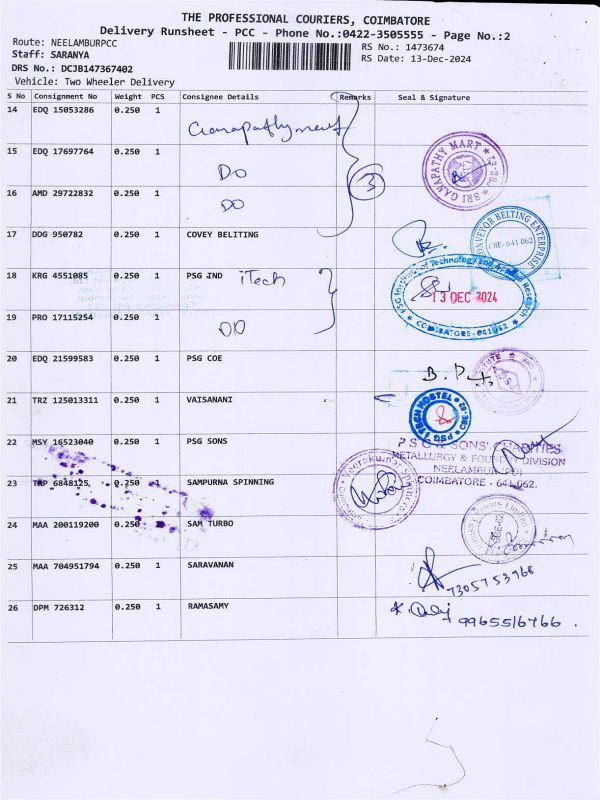 THE PROFESSIONAL COURIERS, COIMBATORE
Delivery Runsheet - PCC - Phone No.:0422-3505555 - Page No.:2
Route: NEELAMBURPCC
RS No.: 1473674
Staff: SARANYA
RS Date: 13-Dec-2024
DRS No.: DCJB147367402
Vehicle: Two Wheeler Delivery
S No Consignment No Weight PCS Consignee Details Remarks Seal & Signature
14 EDQ 15053286 0.250 1 Ganapathy mart
15 EDQ 17697764 0.250 1 DO
3
SRI GANAPATHY MART
16 AMD 29722832 0.250 1 DO
17 DDG 950782 0.250 1 COVEY BELITING
CONVEYOR BELTING ENTERPRISE
CBE- 641 062
18 KRG 4551085 0.250 1 PSG IND iTech
PSG Institute of Technology and Applied Research
13 DEC 2024
COIMBATORE-641 062
19 PRO 17115254 0.250 1 DO
20 EDQ 21599583 0.250 1 PSG COE
21 TRZ 125013311 0.250 1 VAISANANI
PSG iTECH HOSTEL
22 MSY 16523040 0.250 1 PSG SONS
P S G & SONS' CHARITIES
METALLURGY & FOUNDRY DIVISION
NEELAMBUR (PO)
COIMBATORE - 641 062.
23 TRP 6848125 0.250 1 SAMPURNA SPINNING
24 MAA 200119200 0.250 1 SAM TURBO
25 MAA 704951794 0.250 1 SARAVANAN
7305753968
26 DPM 726312 0.250 1 RAMASAMY
9965516766.